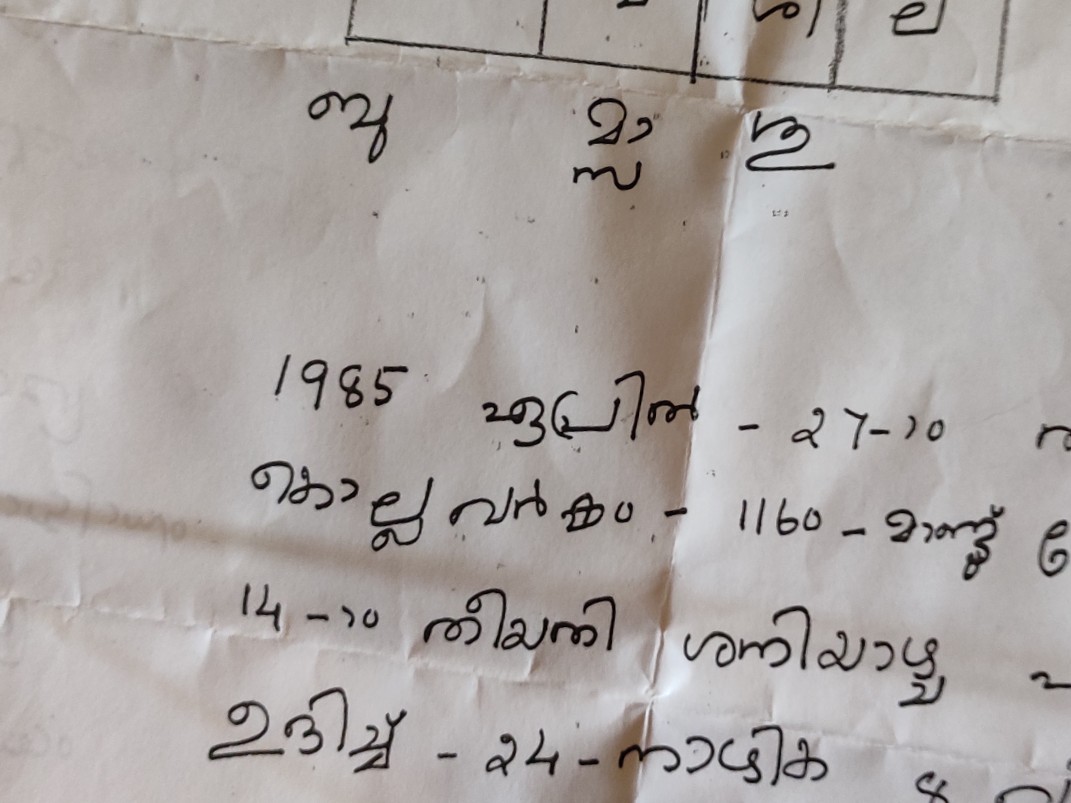 ശി ല
ബു മാ ഇ
1985 ഏപ്രിൽ - 27-ാം
കൊല്ലവർഷം - 1160 - മാണ്ട്
14 - ാം തീയതി ശനിയാഴ്ച
ഉദിച്ച് - 24 - നാഴിക 8